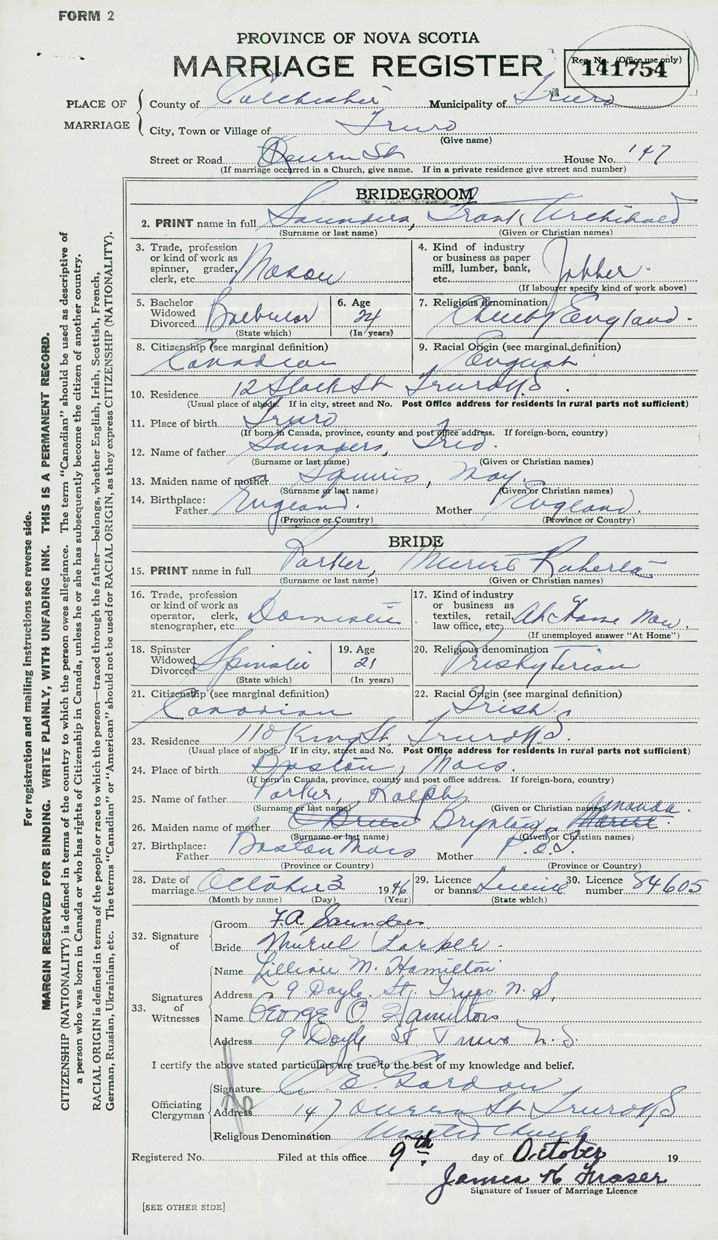 FORM 2
PROVINCE OF NOVA SCOTIA
MARRIAGE REGISTER
Reg. No. (Office use only)
141754
PLACE OF MARRIAGE
County of Colchester Municipality of Truro
City, Town or Village of Truro
(Give name)
Street or Road Queen St House No. 147
(If marriage occurred in a Church, give name. If in a private residence give street and number)
BRIDEGROOM
2. PRINT name in full Saunders, Frank Archibald
(Surname or last name) (Given or Christian names)
3. Trade, profession or kind of work as spinner, grader, clerk, etc. Mason
4. Kind of industry or business as paper mill, lumber, bank, etc. Jobber
(If labourer specify kind of work above)
5. Bachelor Widowed Divorced Bachelor
(State which)
6. Age 24
(In years)
7. Religious denomination Church England
8. Citizenship (see marginal definition) Canadian
9. Racial Origin (see marginal definition) English
10. Residence 12 St Truro N.S.
(Usual place of abode. If in city, street and No. Post Office address for residents in rural parts not sufficient)
11. Place of birth Truro
(If born in Canada, province, county and post office address. If foreign-born, country)
12. Name of father Saunders, Fred
(Surname or last name) (Given or Christian names)
13. Maiden name of mother Squires, May
(Surname or last name) (Given or Christian names)
14. Birthplace: Father England Mother England
(Province or Country) (Province or Country)
BRIDE
15. PRINT name in full Parker, Muriel Roberta
(Surname or last name) (Given or Christian names)
16. Trade, profession or kind of work as operator, clerk, stenographer, etc. Domestic
17. Kind of industry or business as textiles, retail, law office, etc. At Home Now
(If unemployed answer "At Home")
18. Spinster Widowed Divorced Spinster
(State which)
19. Age 21
(In years)
20. Religious denomination Presbyterian
21. Citizenship (see marginal definition) Canadian
22. Racial Origin (see marginal definition) Irish
23. Residence 110 King St. Truro N.S.
(Usual place of abode. If in city, street and No. Post Office address for residents in rural parts not sufficient)
24. Place of birth Boston, Mass
(If born in Canada, province, county and post office address. If foreign-born, country)
25. Name of father Parker, Ralph
(Surname or last name) (Given or Christian names)
26. Maiden name of mother Amanda
(Surname or last name) (Given or Christian names)
27. Birthplace: Father Boston Mass Mother P.E.I.
(Province or Country) (Province or Country)
28. Date of marriage October 3 1946
(Month by name) (Day) (Year)
29. Licence or banns License
(State which)
30. Licence number 84605
32. Signature of
Groom F.A. Saunders
Bride Muriel Parker
33. Signatures of Witnesses
Name Lillian M. Hamilton
Address 9 Doyle St. Truro N.S.
Name George O Hamilton
Address 9 Doyle St Truro N.S.
I certify the above stated particulars are true to the best of my knowledge and belief.
Officiating Clergyman
Signature C E Gordon
Address 147 Queen St Truro N.S
Religious Denomination United Church
Registered No. Filed at this office 9th day of October 19
James H Fraser
Signature of Issuer of Marriage Licence
[SEE OTHER SIDE]
For registration and mailing instructions see reverse side.
MARGIN RESERVED FOR BINDING. WRITE PLAINLY, WITH UNFADING INK. THIS IS A PERMANENT RECORD.
CITIZENSHIP (NATIONALITY) is defined in terms of the country to which the person owes allegiance. The term "Canadian" should be used as descriptive of
a person who was born in Canada or who has rights of Citizenship in Canada, unless he or she has subsequently become the citizen of another country.
RACIAL ORIGIN is defined in terms of the people or race to which the person—traced through the father—belongs, whether English, Irish, Scottish, French,
German, Russian, Ukrainian, etc. The terms "Canadian" or "American" should not be used for RACIAL ORIGIN, as they express CITIZENSHIP (NATIONALITY).